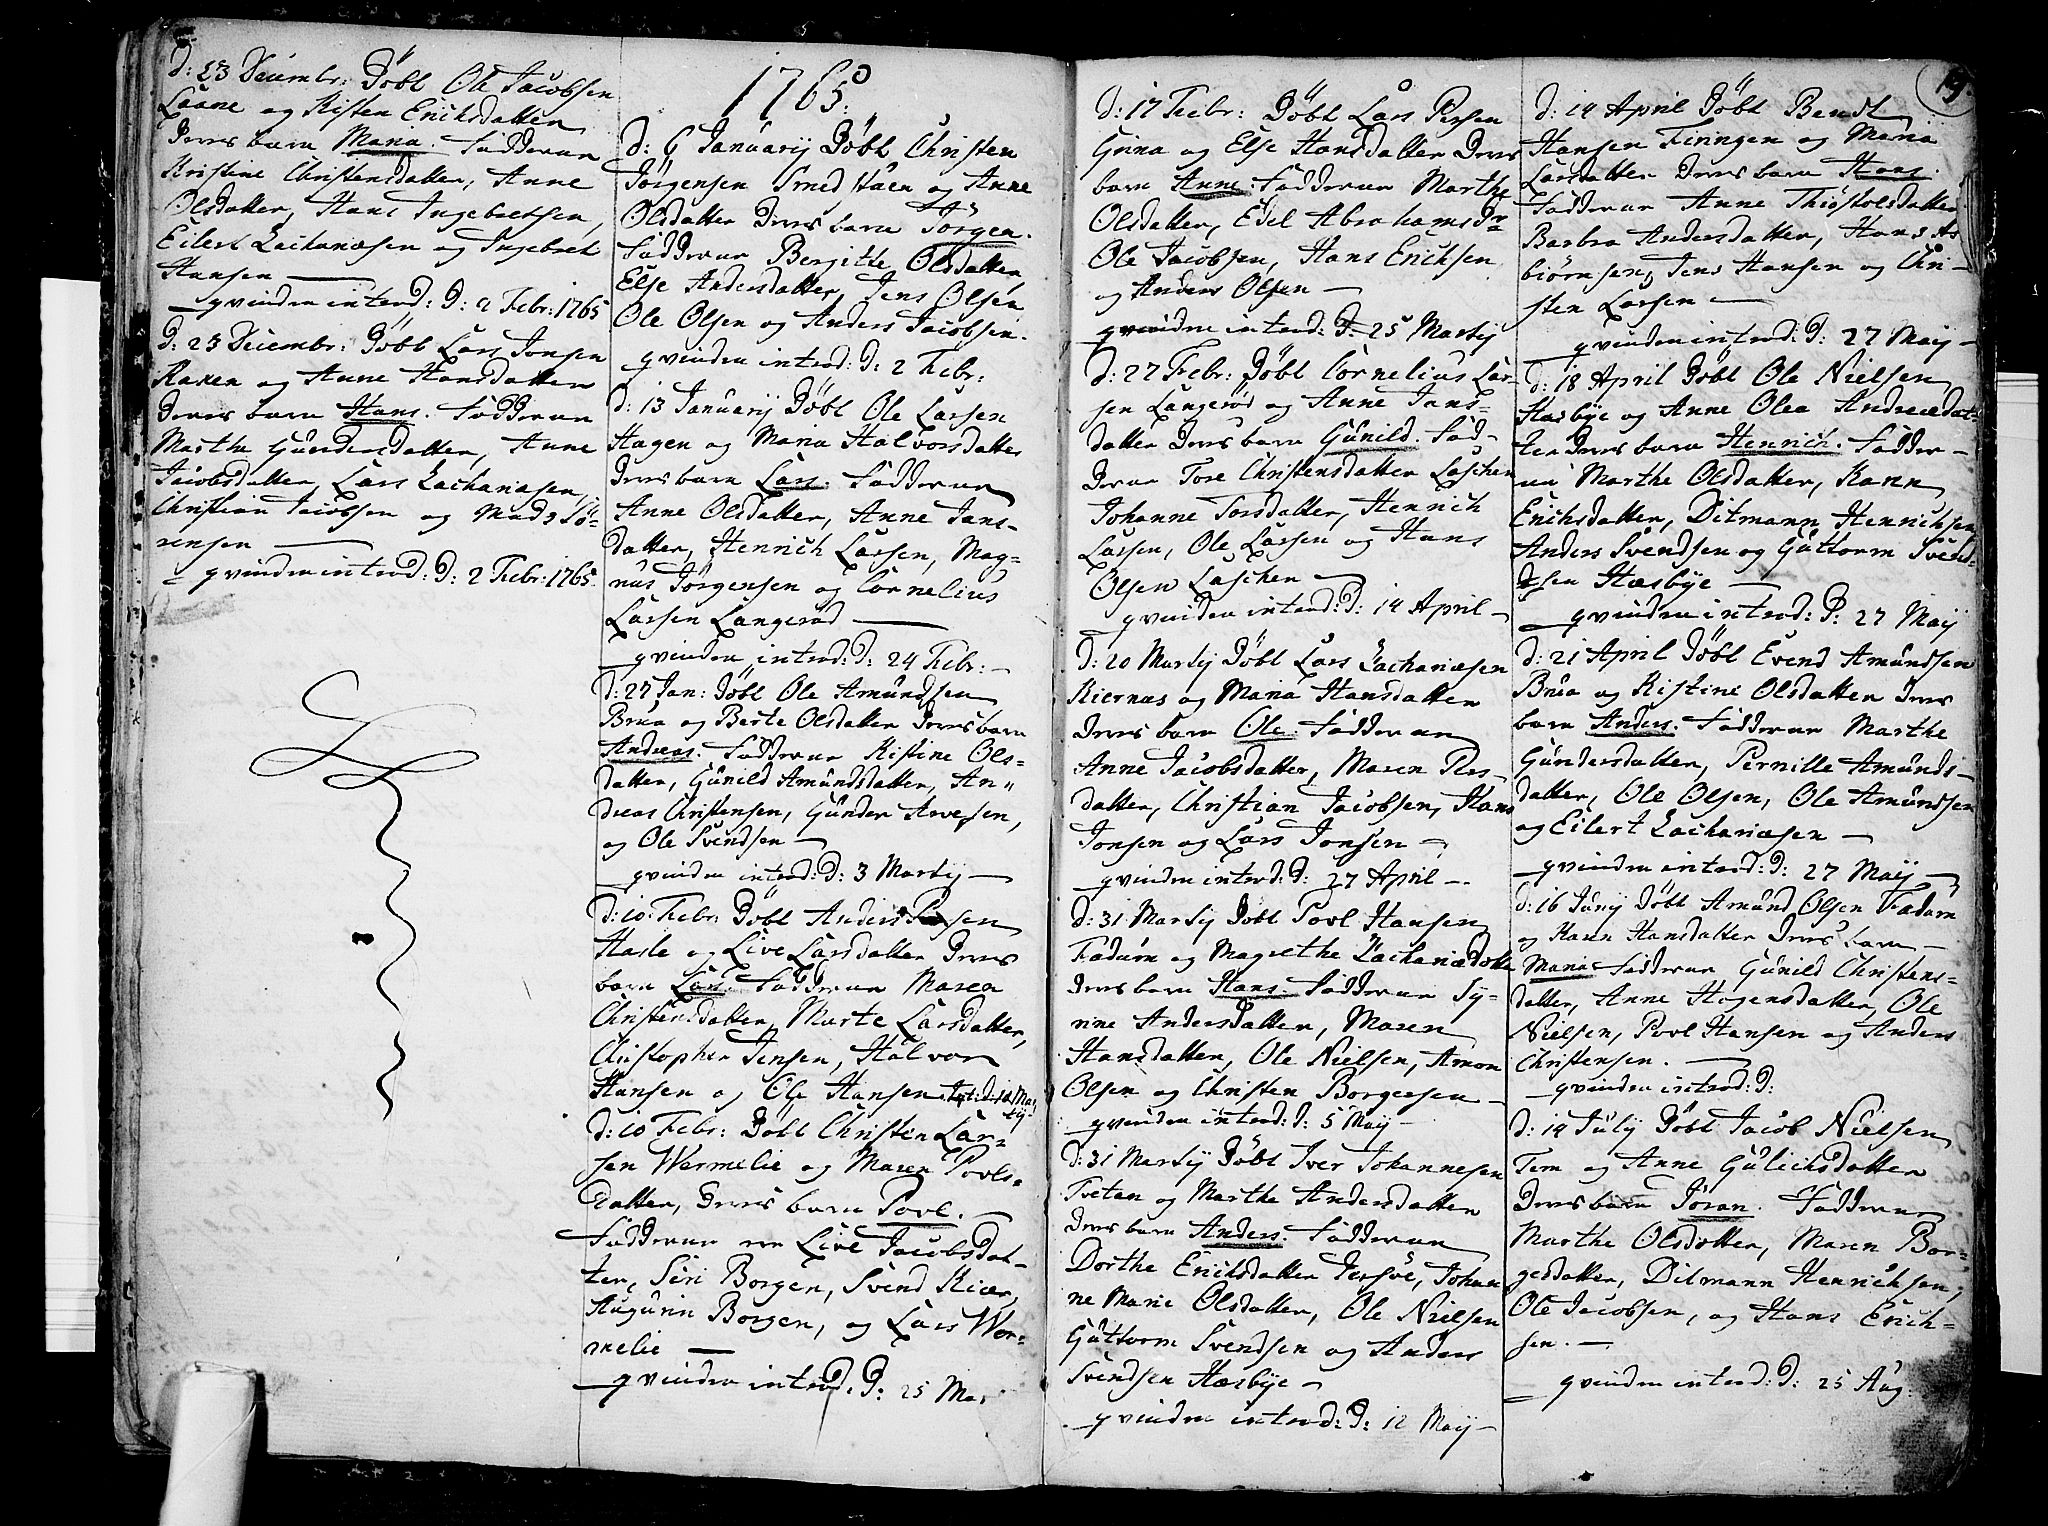 D: 23 Decembr: Döbt Ole Jacobsen
Laane og Kisten Erichsdatter
Deres barn Maria. Fadderne
Kristine Christensdatter, Anne
Olsdatter, Hans Ingebretsen,
Eilert Zachariæsen og Ingebret
Hansen —
qvinden introd: D: 2 Febr: 1765
D: 23 Decembr: Döbt Lars Jonsen
Raxen og Anne Hansdatter
deres barn Hans. Fadderne
Marthe Gundersdatter, Anne
Jacobsdatter, Lars Zachariasen,
Christian Jacobsen og Mads Sö-
rensen —
qvinden introd: D: 2 Febr: 1765.
1765.
D: 6 Januarij Döbt Christen
Jörgensen Smedstuen og Anne
Olsdatter Deres barn Jörgen.
Fadderne Bergitte Olsdatter
Else Andersdatter, Jens Olsen
Ole Olsen og Anders Jacobsen.
qvinden introd: D: 2 Febr:
D: 13 Januarij Döbt Ole Larsen
Hagen og Maria Halvorsdatter
Deres barn Lars. Fadderne
Anne Olsdatter, Anne Jans-
datter, Henrich Larsen, Mag-
nus Jörgensen og Cornelius
Larsen Langeröd —
qvinden introd: D: 24 Febr: —
D: 27 Jan: Döbt Ole Amundsen
Brua og Berte Olsdatter Deres barn
Andreas. Fadderne Kistine Ols-
datter, Gunild Amundsdatter, An-
dreas Christensen, Gunder Arvesen,
og Ole Svendsen —
qvinden introd: D: 3 Martij —
D: 10 Febr: Döbt Anders
Hasle og Live Larsdatter Deres
barn Lars. Fadderne Maren
Christensdatter, Marte Larsdatter,
Christopher Jensen, Halvor
Hansen og Ole Hansen Int: D: 12 Mar
tij
D: 10 Febr: Döbt Christen Lar-
sen Wermelie og Maren Povls-
datter, Deres barn Povl. —
Fadderne ere Live Jacobsdat-
ter, Siri Borgen, Svend Kiær,
Augurin Borgen, og Lars Wer-
melie —
qvinden introd: D: 25 Mar
19
D: 17 Febr: Döbt Lars Persen
Grina og Else Hansdatter Deres
barn Anne. Fadderne Marthe
Olsdatter, Edel Abrahamsdr
Ole Jacobsen, Hans Erichsen
og Anders Olsen —
qvinden introd: D: 25 Martij
D: 27 Febr: Döbt Cornelius Lar-
sen Langeröd og Anne Jans-
datter Deres barn Gunild. Fad-
derne Tore Christensdatter Laschen
Johanne Torsdatter, Henrich
Larsen, Ole Larsen og Hans
Olsen Laschen —
qvinden introd: D: 14 April —
D: 20 Martij Döbt Lars Zachariæsen
Kiernaas og Maria Hansdatter
Deres barn Ole. Fadderne
Anne Jacobsdatter, Maren Pers-
datter, Christian Jacobsen, Hans
Jonsen og Lars Jonsen —
qvinden introd: D: 27 April —
D: 31 Martij Döbt Povl Hansen
Fadum og Magrethe Zachariædotter
Deres barn Hans. Fadderne Sy-
rine Andersdatter, Maren
Hansdatter, Ole Nielsen, Amon
Olsen og Christen Borgersen —
qvinden introd: D: 5 Maij —
D: 31 Martij Döbt Iver Johannesen
Tvetan og Marthe Andersdatter
Deres barn Anders. Fadderne
Dorthe Erichsdatter Jersöe, Johan
ne Marie Olsdatter, Ole Nielsen
Guttorm Svendsen og Anders
Svendsen Hæsbye —
qvinden introd: D: 12 Maij —
D: 14 April Döbt Bendt
Hansen Firingen og Maria
Larsdatter Deres barn Hans.
Fadderne Anne Thiostolsdatter
Barbra Andersdatter, Hans As
biörnsen, Jens Hansen og Chri-
sten Larsen —
qvinden introd: D: 27 Maij —
D: 18 April Döbt Ole Nielsen
Hæsbye og Anne Olea Andreædat
ter Deres barn Henrich. Fadder-
ne Marthe Olsdatter, Karen
Erichsdatter, Ditmann Henrichsen
Anders Svendsen og Guttorm Svend
sen Hæsbye —
qvinden introd: D: 27 Maij
D: 21 April Döbt Evend Amundsen
Brua og Kistine Olsdatter Deres
barn Anders. Fadderne Marthe
Gundersdatter, Pernille Amunds-
datter, Ole Olsen, Ole Amundsen
og Eilert Zachariæsen —
qvinden introd: D: 27 Maij —
D: 16 Junij Döbt Amund Olsen Fadum
og Karen Hansdatter Deres barn —
Maria. Fadderne Gunild Christens-
datter, Anne Hagensdatter, Ole
Nielsen, Povl Hansen og Anders
Christensen. —
qvinden introd: D:
D: 14 July Döbt Jacob Nielsen
Tem og Anne Gulichsdatter
Deres barn Joran. Fadderne
Marthe Olsdatter, Maren Bor-
gesdatter, Ditmann Henrichsen,
Ole Jacobsen, og Hans Erich-
sen. —
qvinden introd: D: 25 Aug: